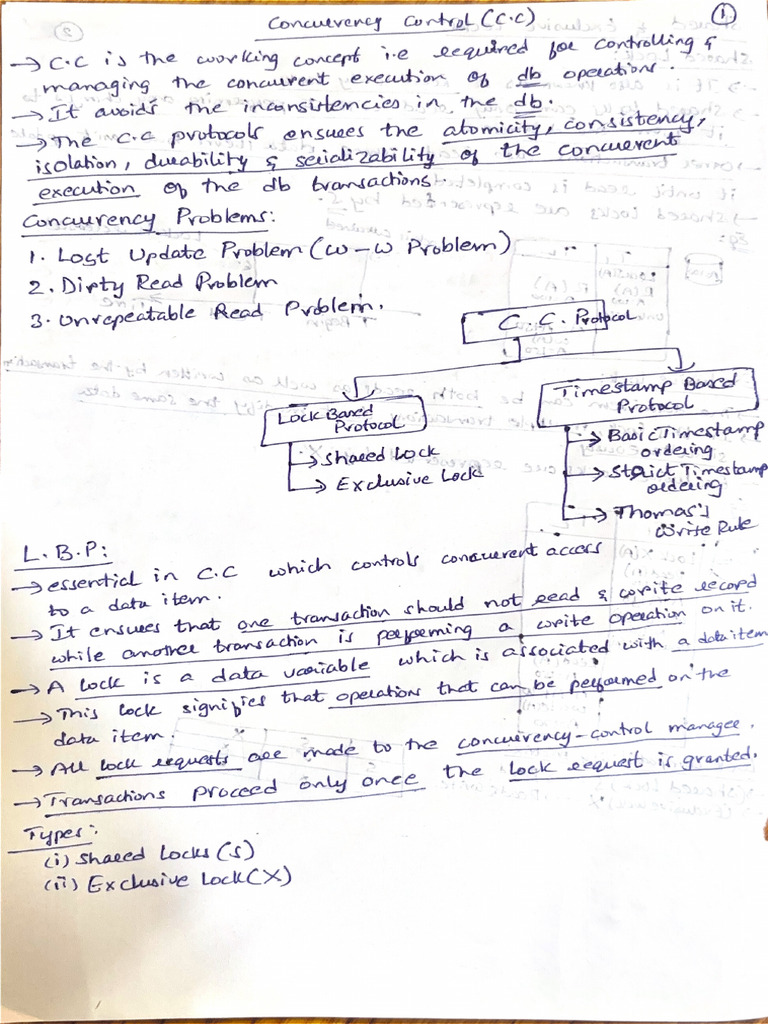 Concurrency Control (C.C)
1
→ C.C is the working concept i.e required for controlling &
managing the concurrent execution of db operations.
→ It avoids the inconsistencies in the db.
→ The C.C protocols ensures the atomicity, consistency,
isolation, durability & serializability of the concurrent
execution of the db transactions
Concurrency Problems:
1. Lost Update Problem (W-W Problem)
2. Dirty Read Problem
3. Unrepeatable Read Problem.
C. C. Protocol
Lock Based
Protocol
→ Shared Lock
→ Exclusive Lock
Timestamp Based
Protocol
→ Basic Timestamp
ordering
→ Strict Timestamp
ordering
→ Thomas's
Write Rule
L.B.P:
→ essential in C.C which controls concurrent access
to a data item.
→ It ensures that one transaction should not read & write record
while another transaction is performing a write operation on it.
→ A lock is a data variable which is associated with a data item
→ This lock signifies that operations that can be performed on the
data item.
→ All lock requests are made to the concurrency-control manager.
→ Transactions proceed only once the lock request is granted.
Types:
(i) Shared Locks (S)
(ii) Exclusive Lock (X)